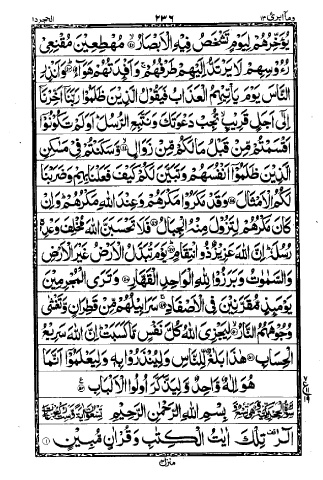 وما ابرئ ١٣ ٢٣٦ الحجر ١٥
يُؤَخِّرُهُمْ لِيَوْمٍ تَشْخَصُ فِيْهِ الْاَبْصَارُ مُهْطِعِيْنَ مُقْنِعِيْ
رُءُوْسِهِمْ لَا يَرْتَدُّ اِلَيْهِمْ طَرْفُهُمْ وَاَفْـِٕدَتُهُمْ هَوَآءٌ وَاَنْذِرِ
النَّاسَ يَوْمَ يَاْتِيْهِمُ الْعَذَابُ فَيَقُوْلُ الَّذِيْنَ ظَلَمُوْا رَبَّنَآ اَخِّرْنَآ
اِلٰٓى اَجَلٍ قَرِيْبٍ نُّجِبْ دَعْوَتَكَ وَنَتَّبِعِ الرُّسُلَ اَوَلَمْ تَكُوْنُوْٓا
اَقْسَمْتُمْ مِّنْ قَبْلُ مَا لَكُمْ مِّنْ زَوَالٍ وَّسَكَنْتُمْ فِيْ مَسٰكِنِ
الَّذِيْنَ ظَلَمُوْٓا اَنْفُسَهُمْ وَتَبَيَّنَ لَكُمْ كَيْفَ فَعَلْنَا بِهِمْ وَضَرَبْنَا
لَكُمُ الْاَمْثَالَ وَقَدْ مَكَرُوْا مَكْرَهُمْ وَعِنْدَ اللّٰهِ مَكْرُهُمْ وَاِنْ
كَانَ مَكْرُهُمْ لِتَزُوْلَ مِنْهُ الْجِبَالُ فَلَا تَحْسَبَنَّ اللّٰهَ مُخْلِفَ وَعْدِهٖ
رُسُلَهٗ اِنَّ اللّٰهَ عَزِيْزٌ ذُو انْتِقَامٍ يَوْمَ تُبَدَّلُ الْاَرْضُ غَيْرَ الْاَرْضِ
وَالسَّمٰوٰتُ وَبَرَزُوْا لِلّٰهِ الْوَاحِدِ الْقَهَّارِ وَتَرَى الْمُجْرِمِيْنَ
يَوْمَئِذٍ مُّقَرَّنِيْنَ فِي الْاَصْفَادِ سَرَابِيْلُهُمْ مِّنْ قَطِرَانٍ وَّتَغْشٰى
وُجُوْهَهُمُ النَّارُ لِيَجْزِيَ اللّٰهُ كُلَّ نَفْسٍ مَّا كَسَبَتْ اِنَّ اللّٰهَ سَرِيْعُ
الْحِسَابِ هٰذَا بَلٰغٌ لِّلنَّاسِ وَلِيُنْذَرُوْا بِهٖ وَلِيَعْلَمُوْٓا اَنَّمَا
هُوَ اِلٰهٌ وَّاحِدٌ وَّلِيَذَّكَّرَ اُولُوا الْاَلْبَابِ
بِسْمِ اللّٰهِ الرَّحْمٰنِ الرَّحِيْمِ
الٓرٰ تِلْكَ اٰيٰتُ الْكِتٰبِ وَقُرْاٰنٍ مُّبِيْنٍ
منزل